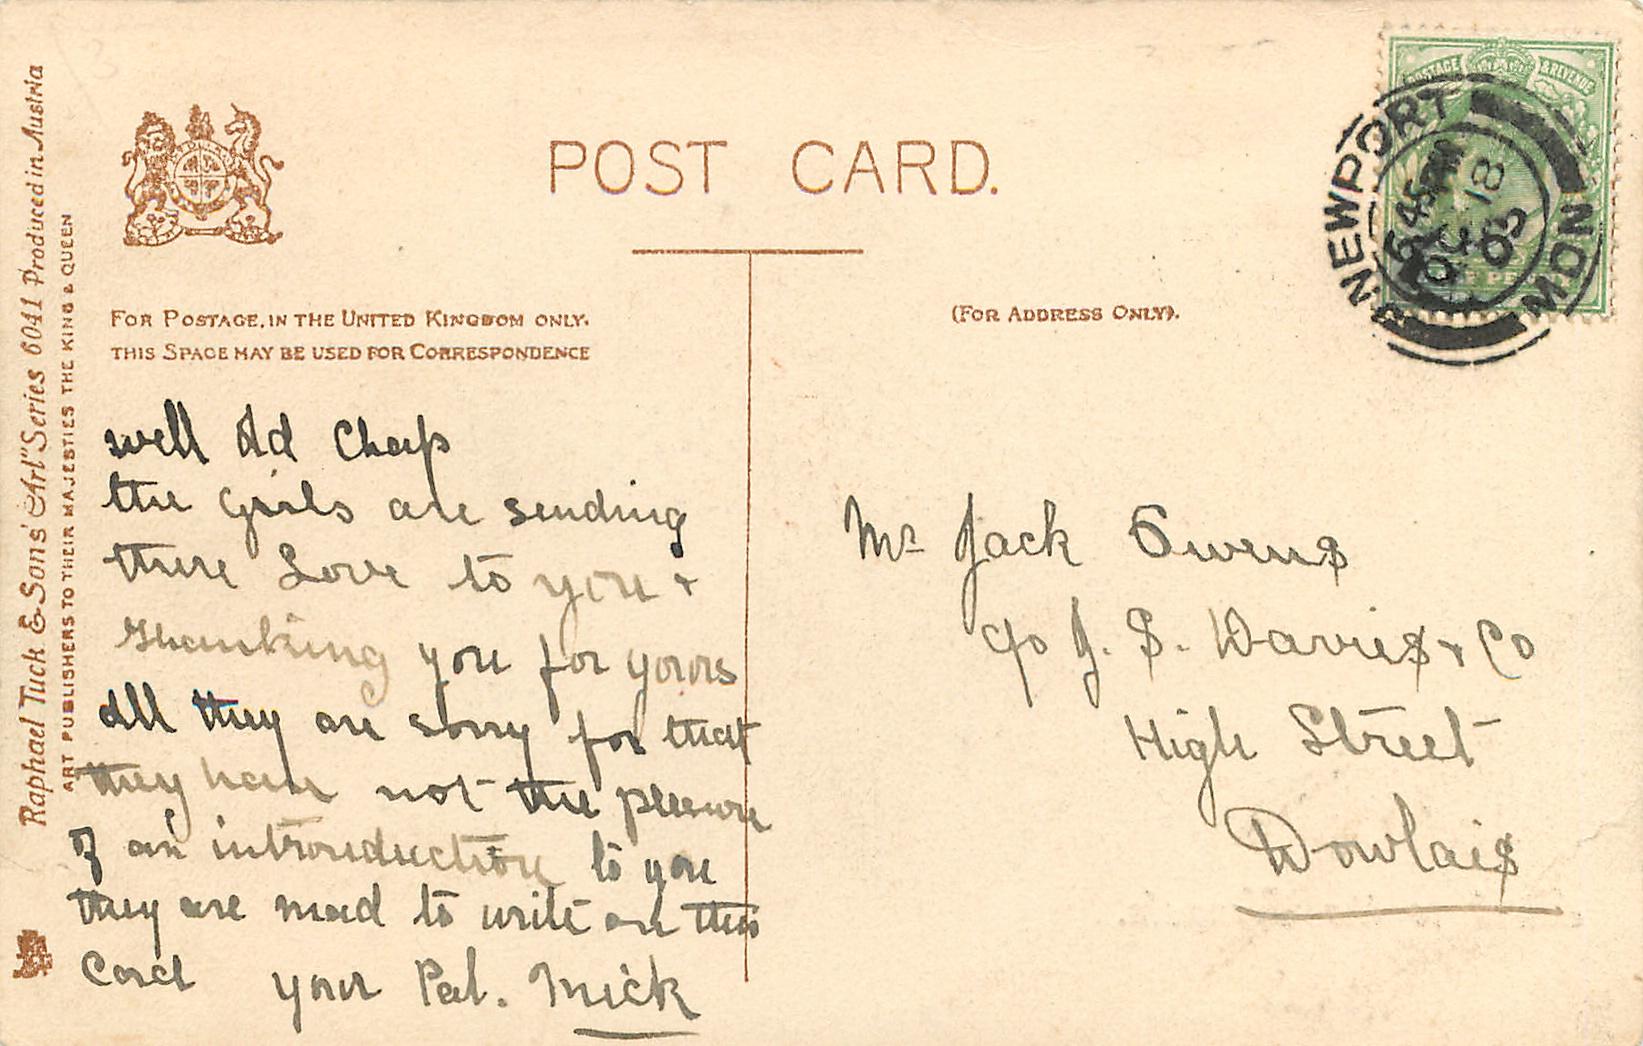 Raphael Tuck & Sons' "Art" Series 6041 Produced in Austria
ART PUBLISHERS TO THEIR MAJESTIES THE KING & QUEEN
POST CARD.
FOR POSTAGE, IN THE UNITED KINGDOM ONLY,
THIS SPACE MAY BE USED FOR CORRESPONDENCE
(FOR ADDRESS ONLY).
POSTAGE & REVENUE
NEWPORT MON
5 45 PM
18
05
well old Chap
the girls are sending
there Love to you +
thanking you for yours
all they are sorry for that
they have not the pleasure
of an introduction to you
they are mad to write on this
Card your Pal. Mick
Mr Jack Owens
c/o J. S. Davies & Co
High Street
Dowlais